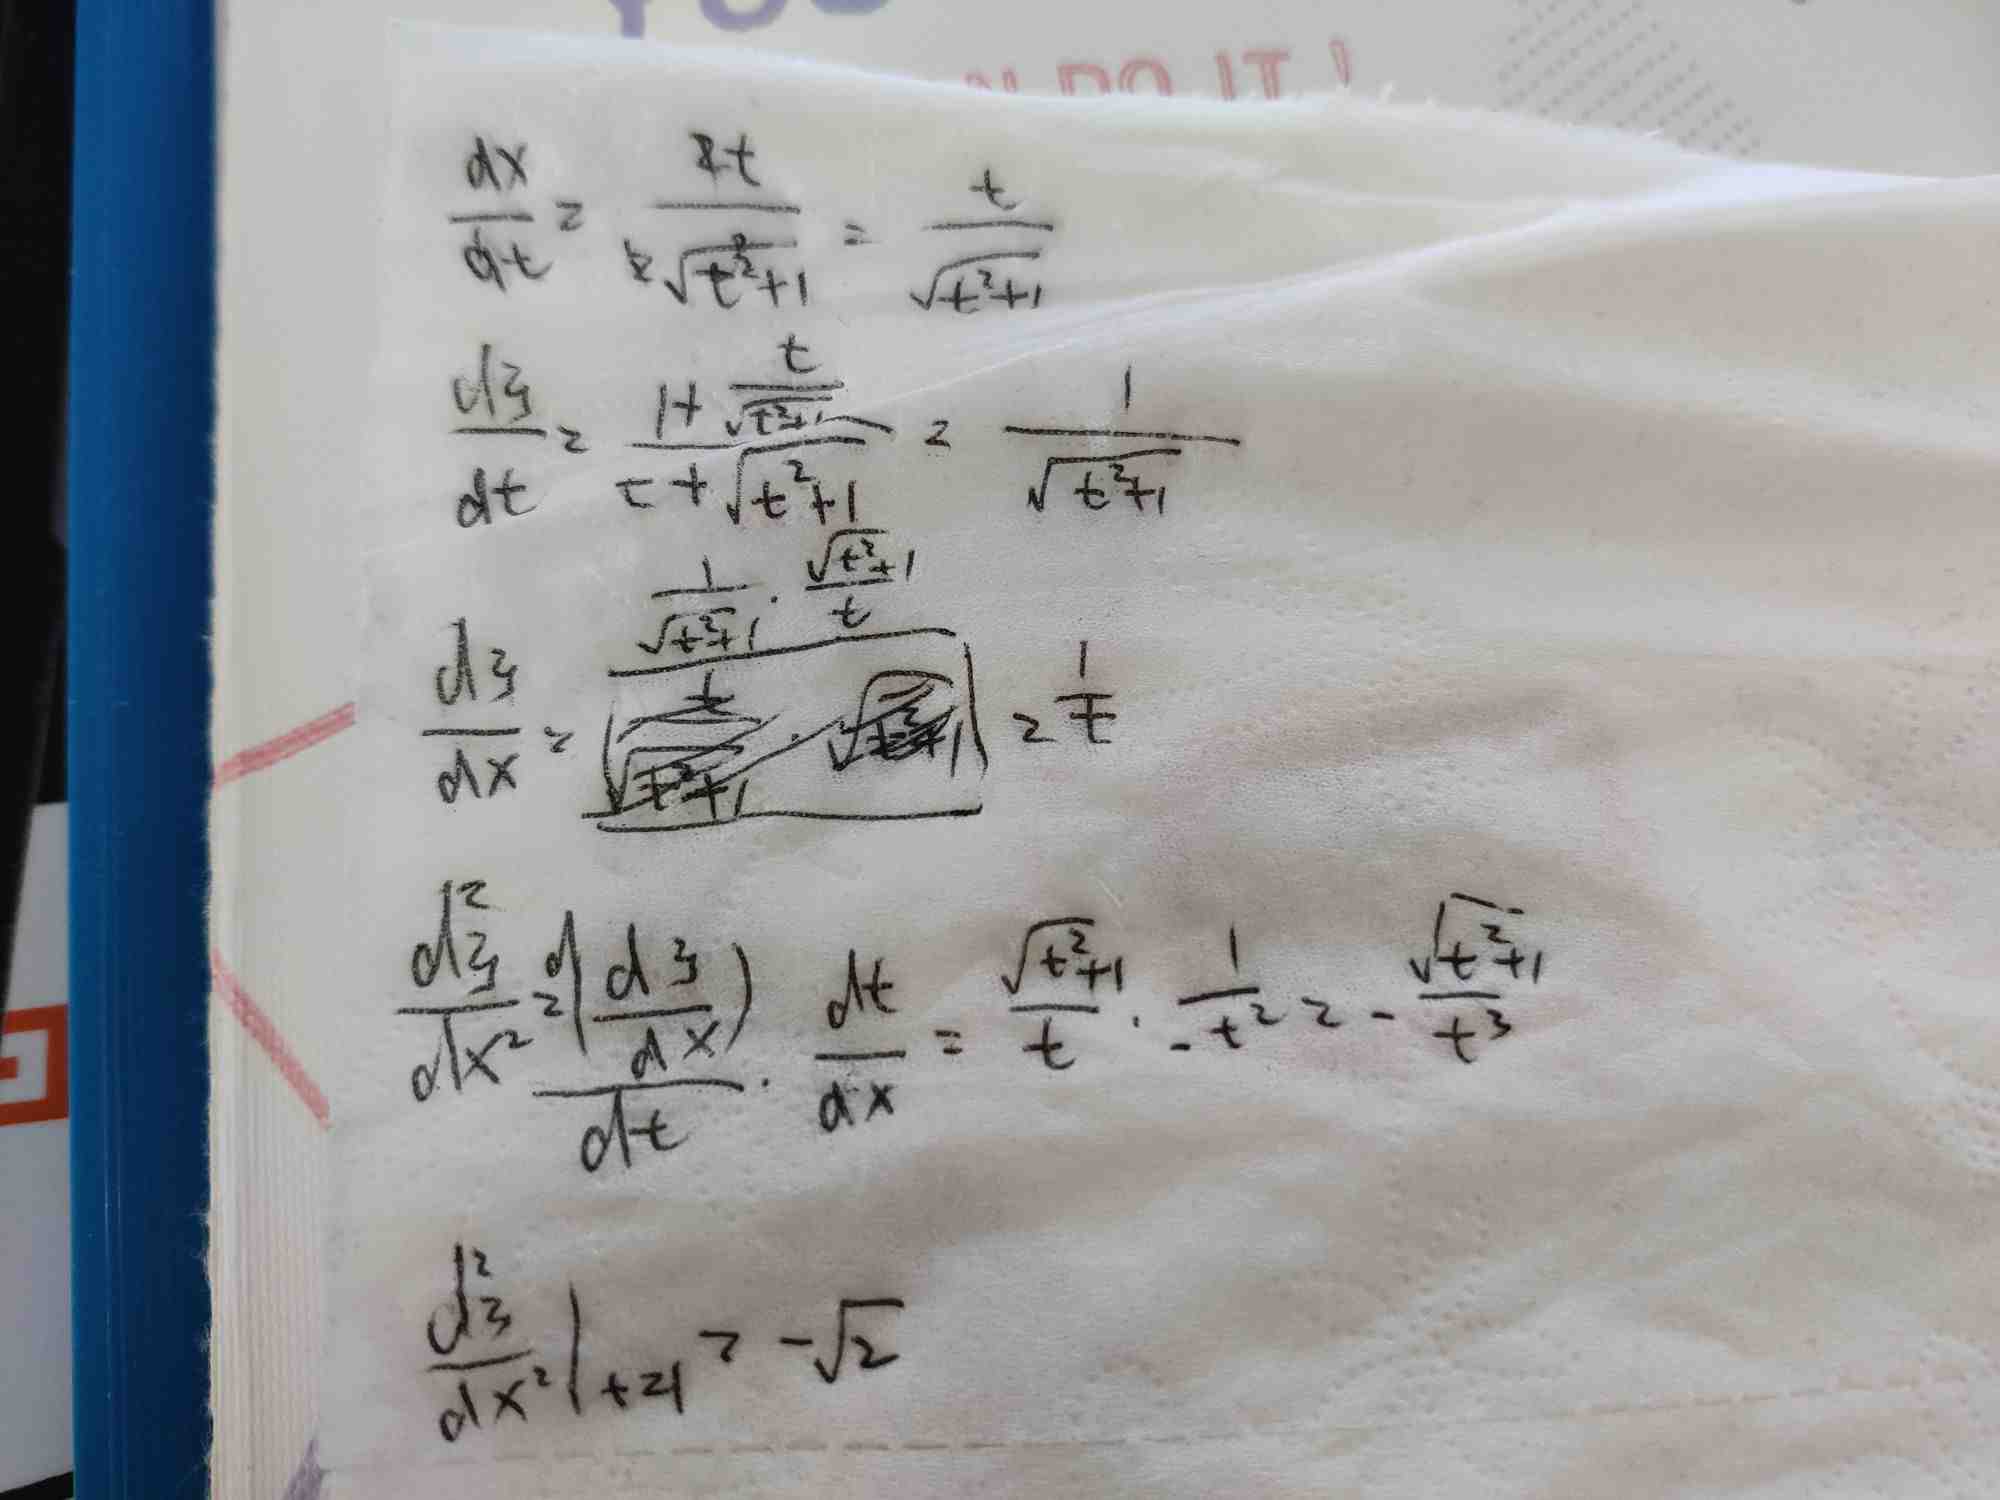 N DO IT !
dx/dt = 2t/(2√(t²+1)) = t/√(t²+1)
dy/dt = (1+t/√(t²+1))/(t+√(t²+1)) = 1/√(t²+1)
dy/dx = 1/√(t²+1) · √(t²+1)/t = 1/t
d²y/dx² = d(dy/dx)/dt · dt/dx = √(t²+1)/t · 1/-t² = - √(t²+1)/t³
d²y/dx²|t=1 = -√2